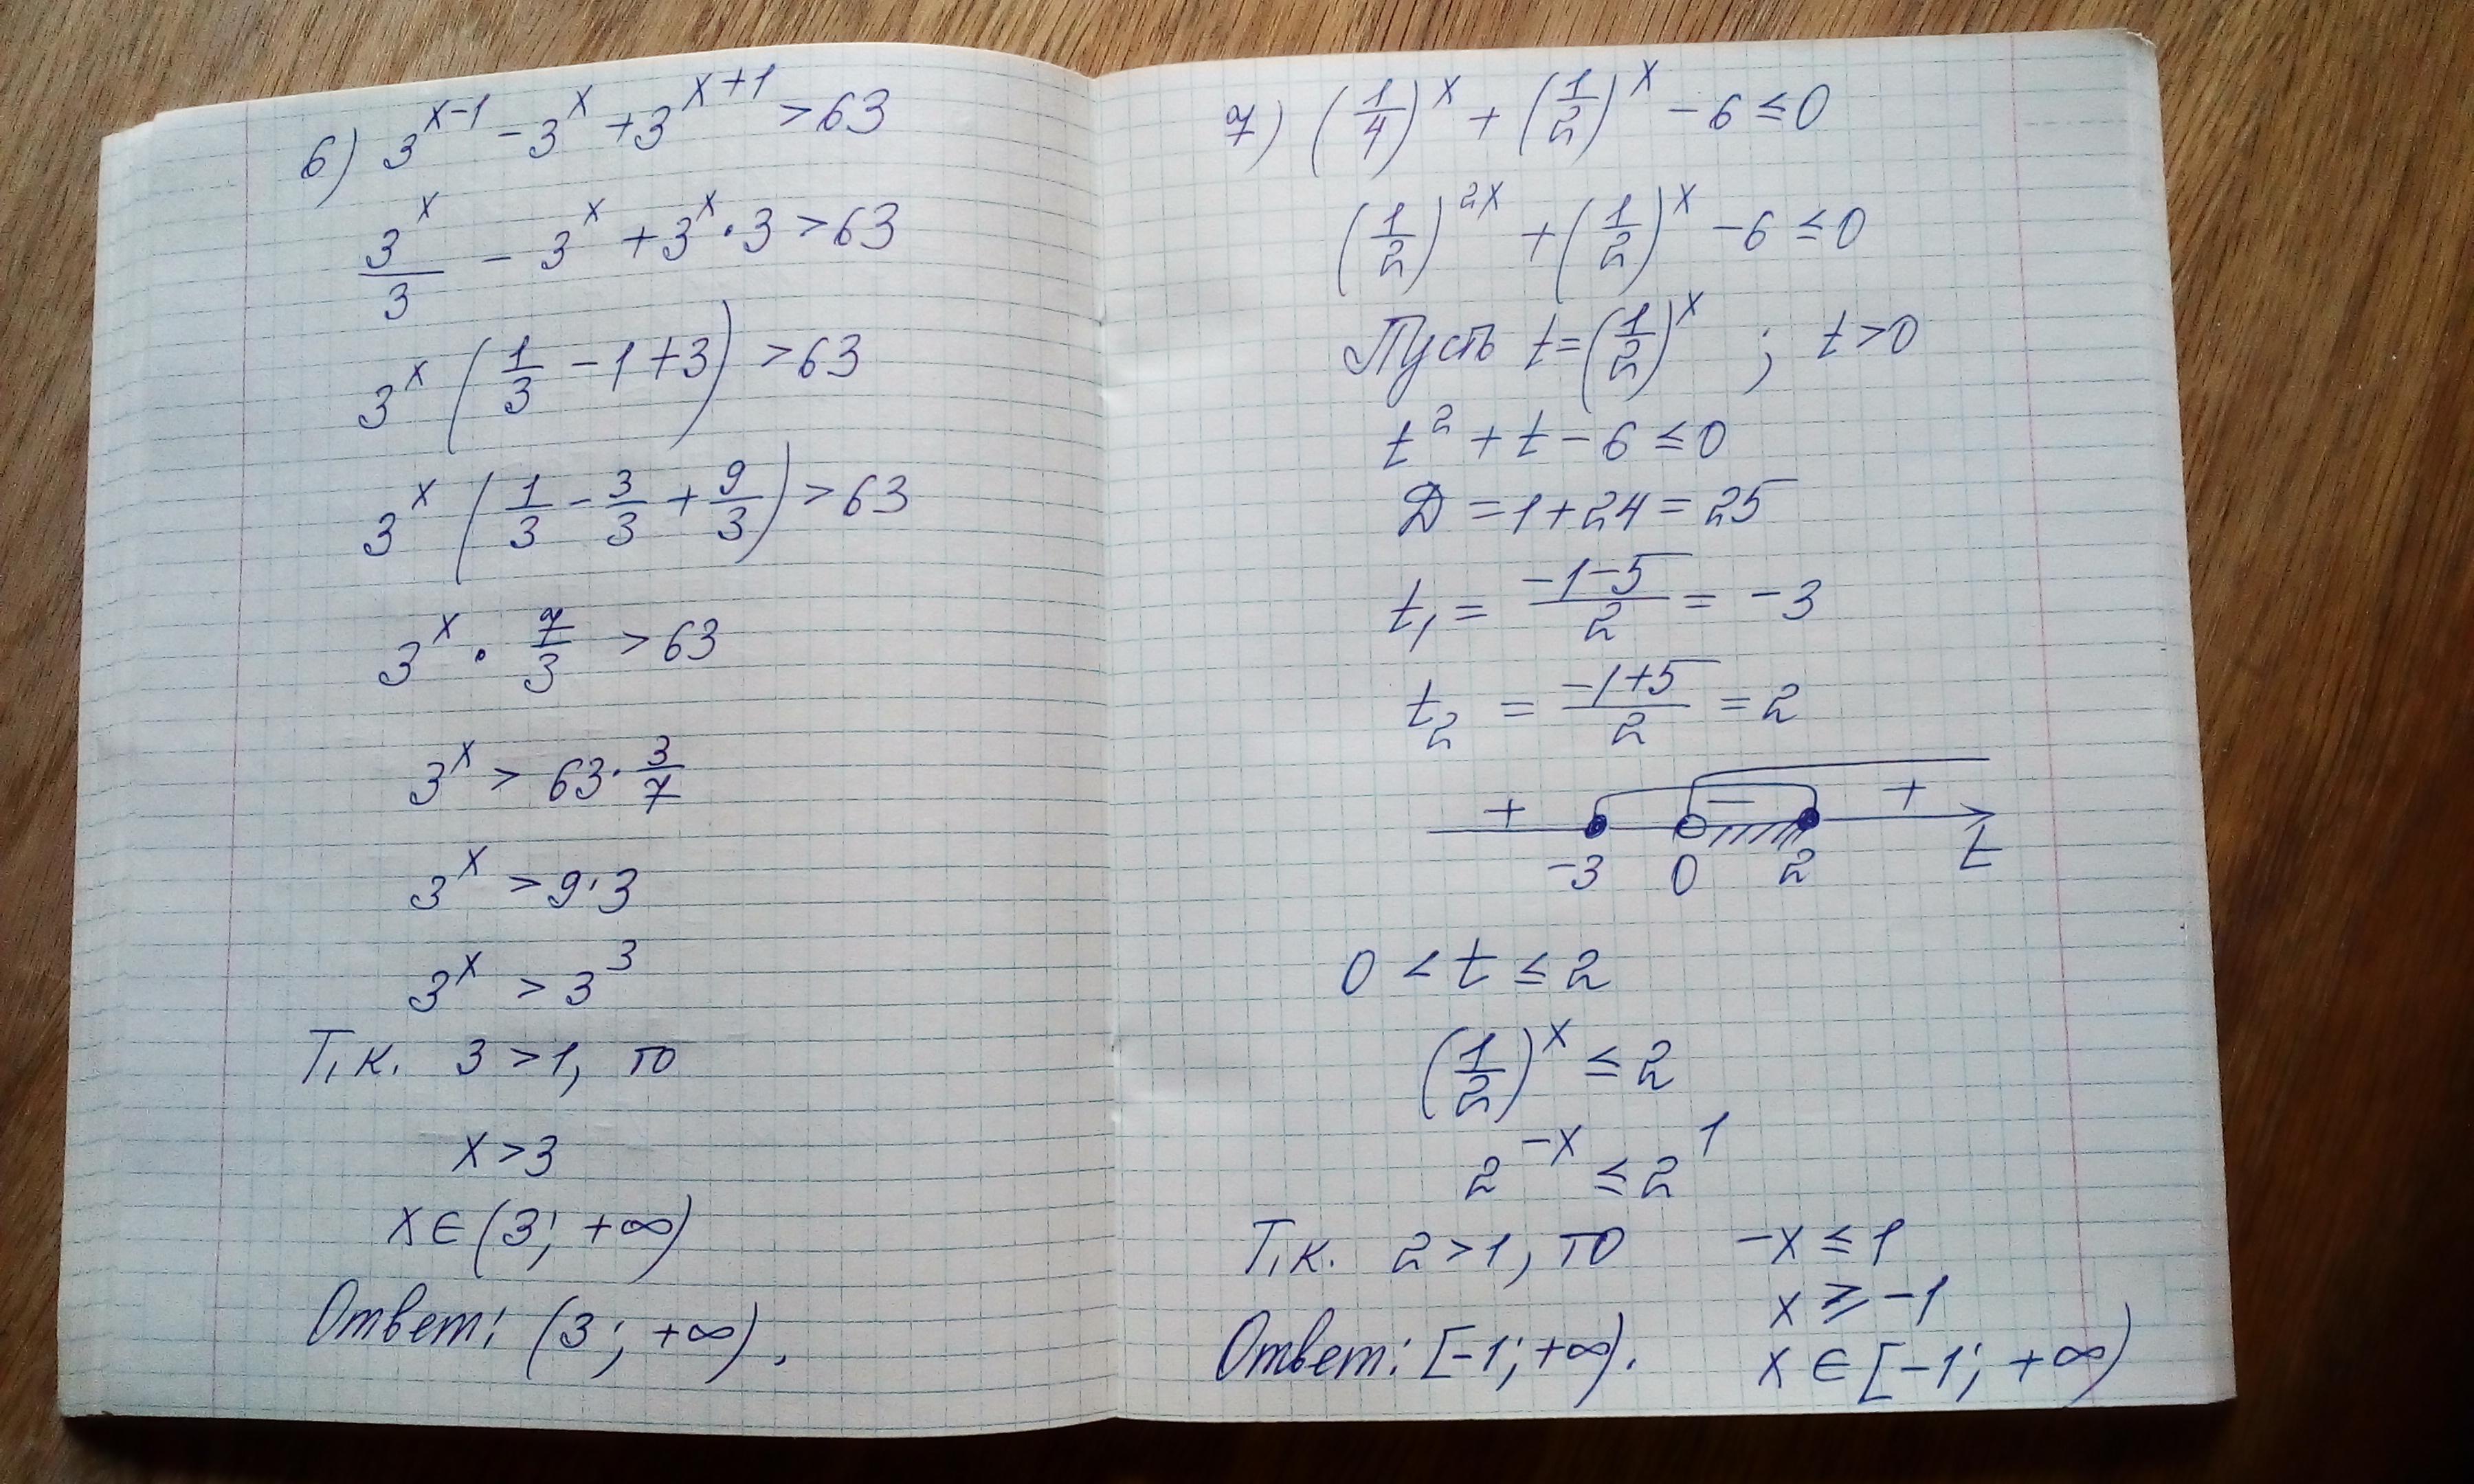 6) 3^(x-1) - 3^x + 3^(x+1) > 63
3^x/3 - 3^x + 3^x · 3 > 63
3^x (1/3 - 1 + 3) > 63
3^x (1/3 - 3/3 + 9/3) > 63
3^x · 7/3 > 63
3^x > 63 · 3/7
3^x > 9 · 3
3^x > 3^3
Т.к. 3 > 1, то
x > 3
x ∈ (3; +∞)
Ответ: (3; +∞).
7) (1/4)^x + (1/2)^x - 6 ≤ 0
(1/2)^(2x) + (1/2)^x - 6 ≤ 0
Пусть t = (1/2)^x ; t > 0
t^2 + t - 6 ≤ 0
D = 1 + 24 = 25
t₁ = (-1-5)/2 = -3
t₂ = (-1+5)/2 = 2
+ − +
-3 0 2 t
0 < t ≤ 2
(1/2)^x ≤ 2
2^(-x) ≤ 2^1
Т.к. 2 > 1, то -x ≤ 1
x ≥ -1
x ∈ [-1; +∞)
Ответ: [-1; +∞).